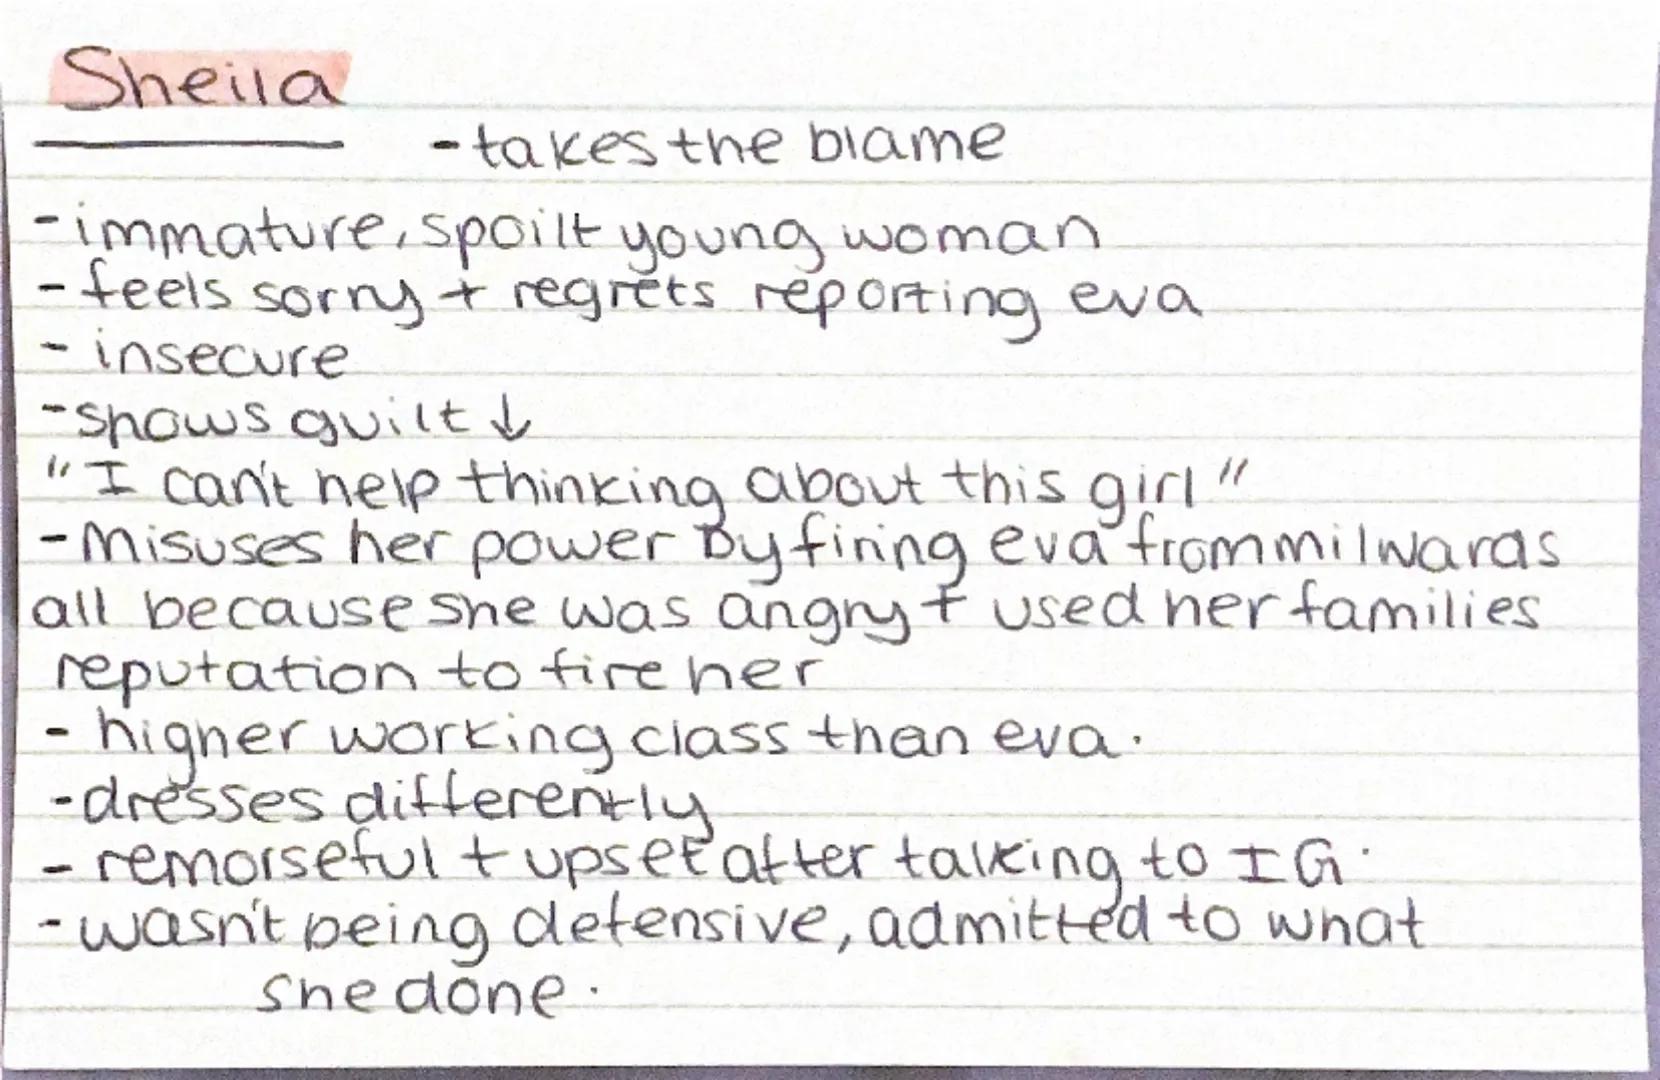 Sheila
- takes the blame
- immature, spoilt young woman
- feels sorry + regrets reporting eva
- insecure
- shows guilt ↓
"I can't help thinking about this girl"
- Misuses her power by firing eva from milwards
all because she was angry + used her families
reputation to fire her
- higher working class than eva.
- dresses differently
- remorseful + upset after talking to IG.
- wasn't being defensive, admitted to what
she done.